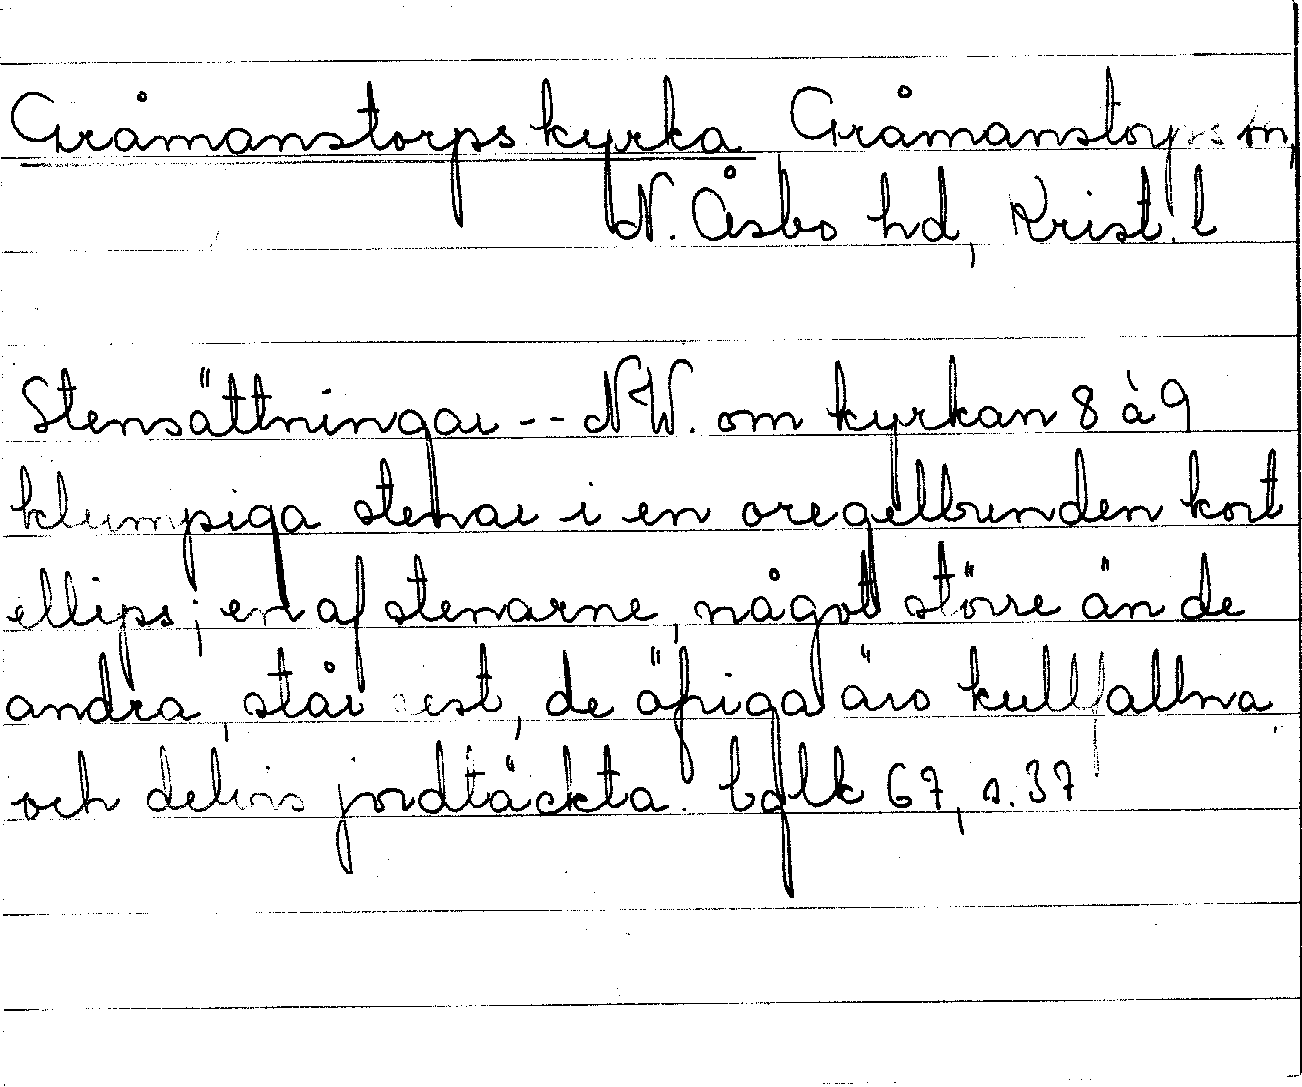 Gråmanstorps kyrka Gråmanstorps sn,
N. Åsbo hd, Krist. l
Stensättningar -- NW. om kyrkan 8 à 9
klumpiga stenar i en oregelbunden kort
ellips; en af stenarne, något större än de
andra, står rest, de öfriga äro kullfallna
och delvis jordtäckta. 67, s. 37